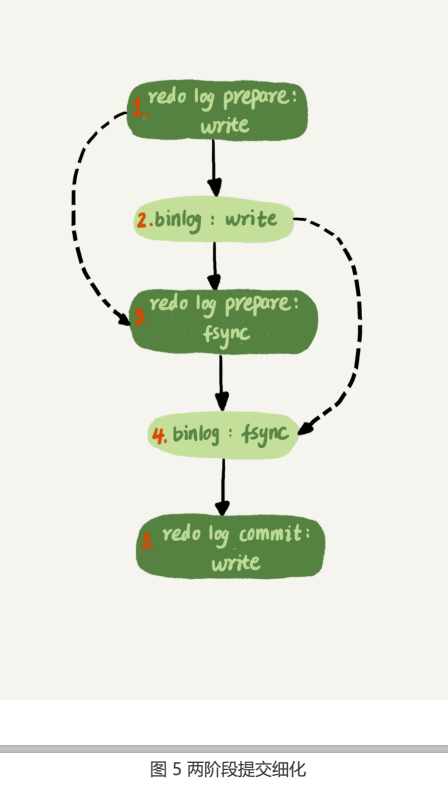 1. redo log prepare:
write
2. binlog : write
3 redo log prepare:
fsync
4. binlog : fsync
5. redo log commit:
write
图 5 两阶段提交细化